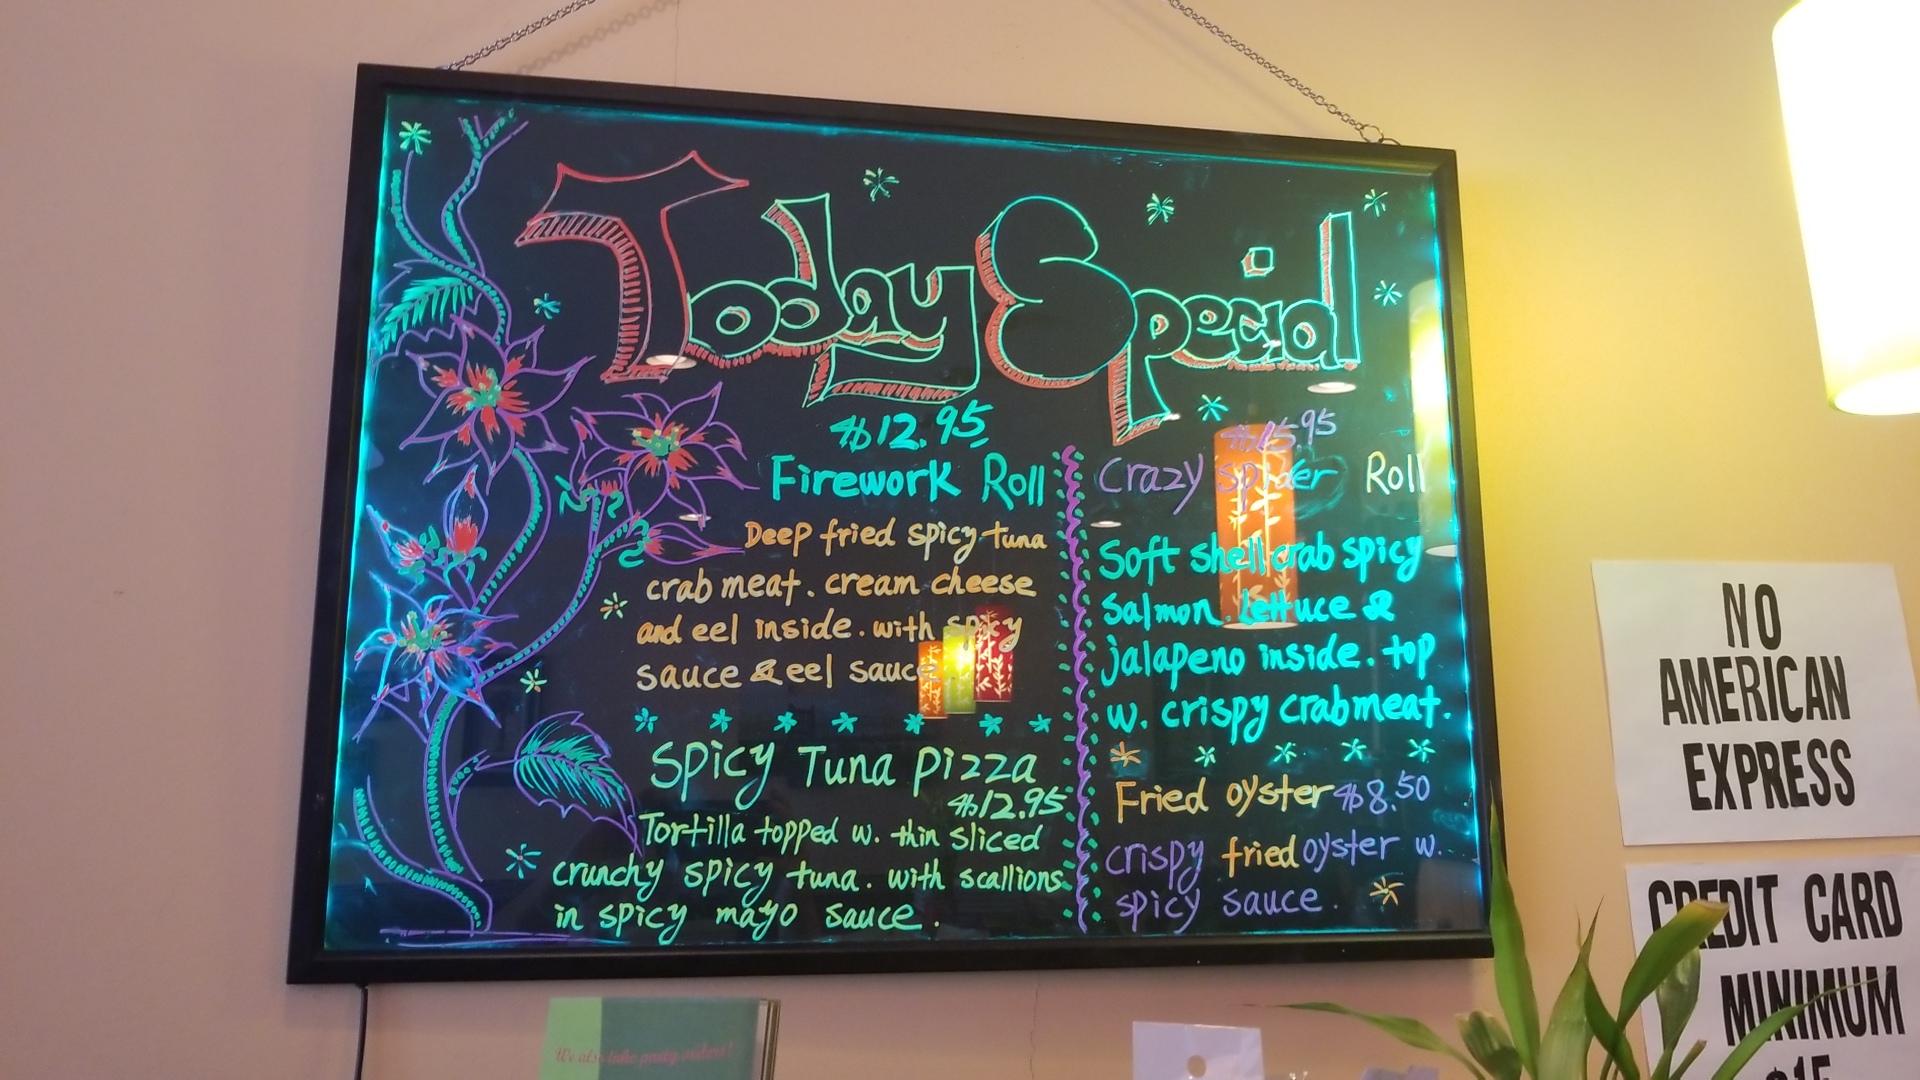 Today Special
$12.95
Firework Roll
Deep fried spicy tuna
crab meat. cream cheese
and eel inside. with spicy
sauce & eel sauce
Spicy Tuna Pizza
$12.95
Tortilla topped w. thin sliced
crunchy spicy tuna. with scallions
in spicy mayo sauce.
$15.95
Crazy Spider Roll
Soft shell crab spicy
Salmon. lettuce &
jalapeno inside. top
w. crispy crabmeat.
Fried oyster $8.50
crispy fried oyster w.
spicy sauce.
NO
AMERICAN
EXPRESS
CREDIT CARD
MINIMUM
$15
We also take party orders!